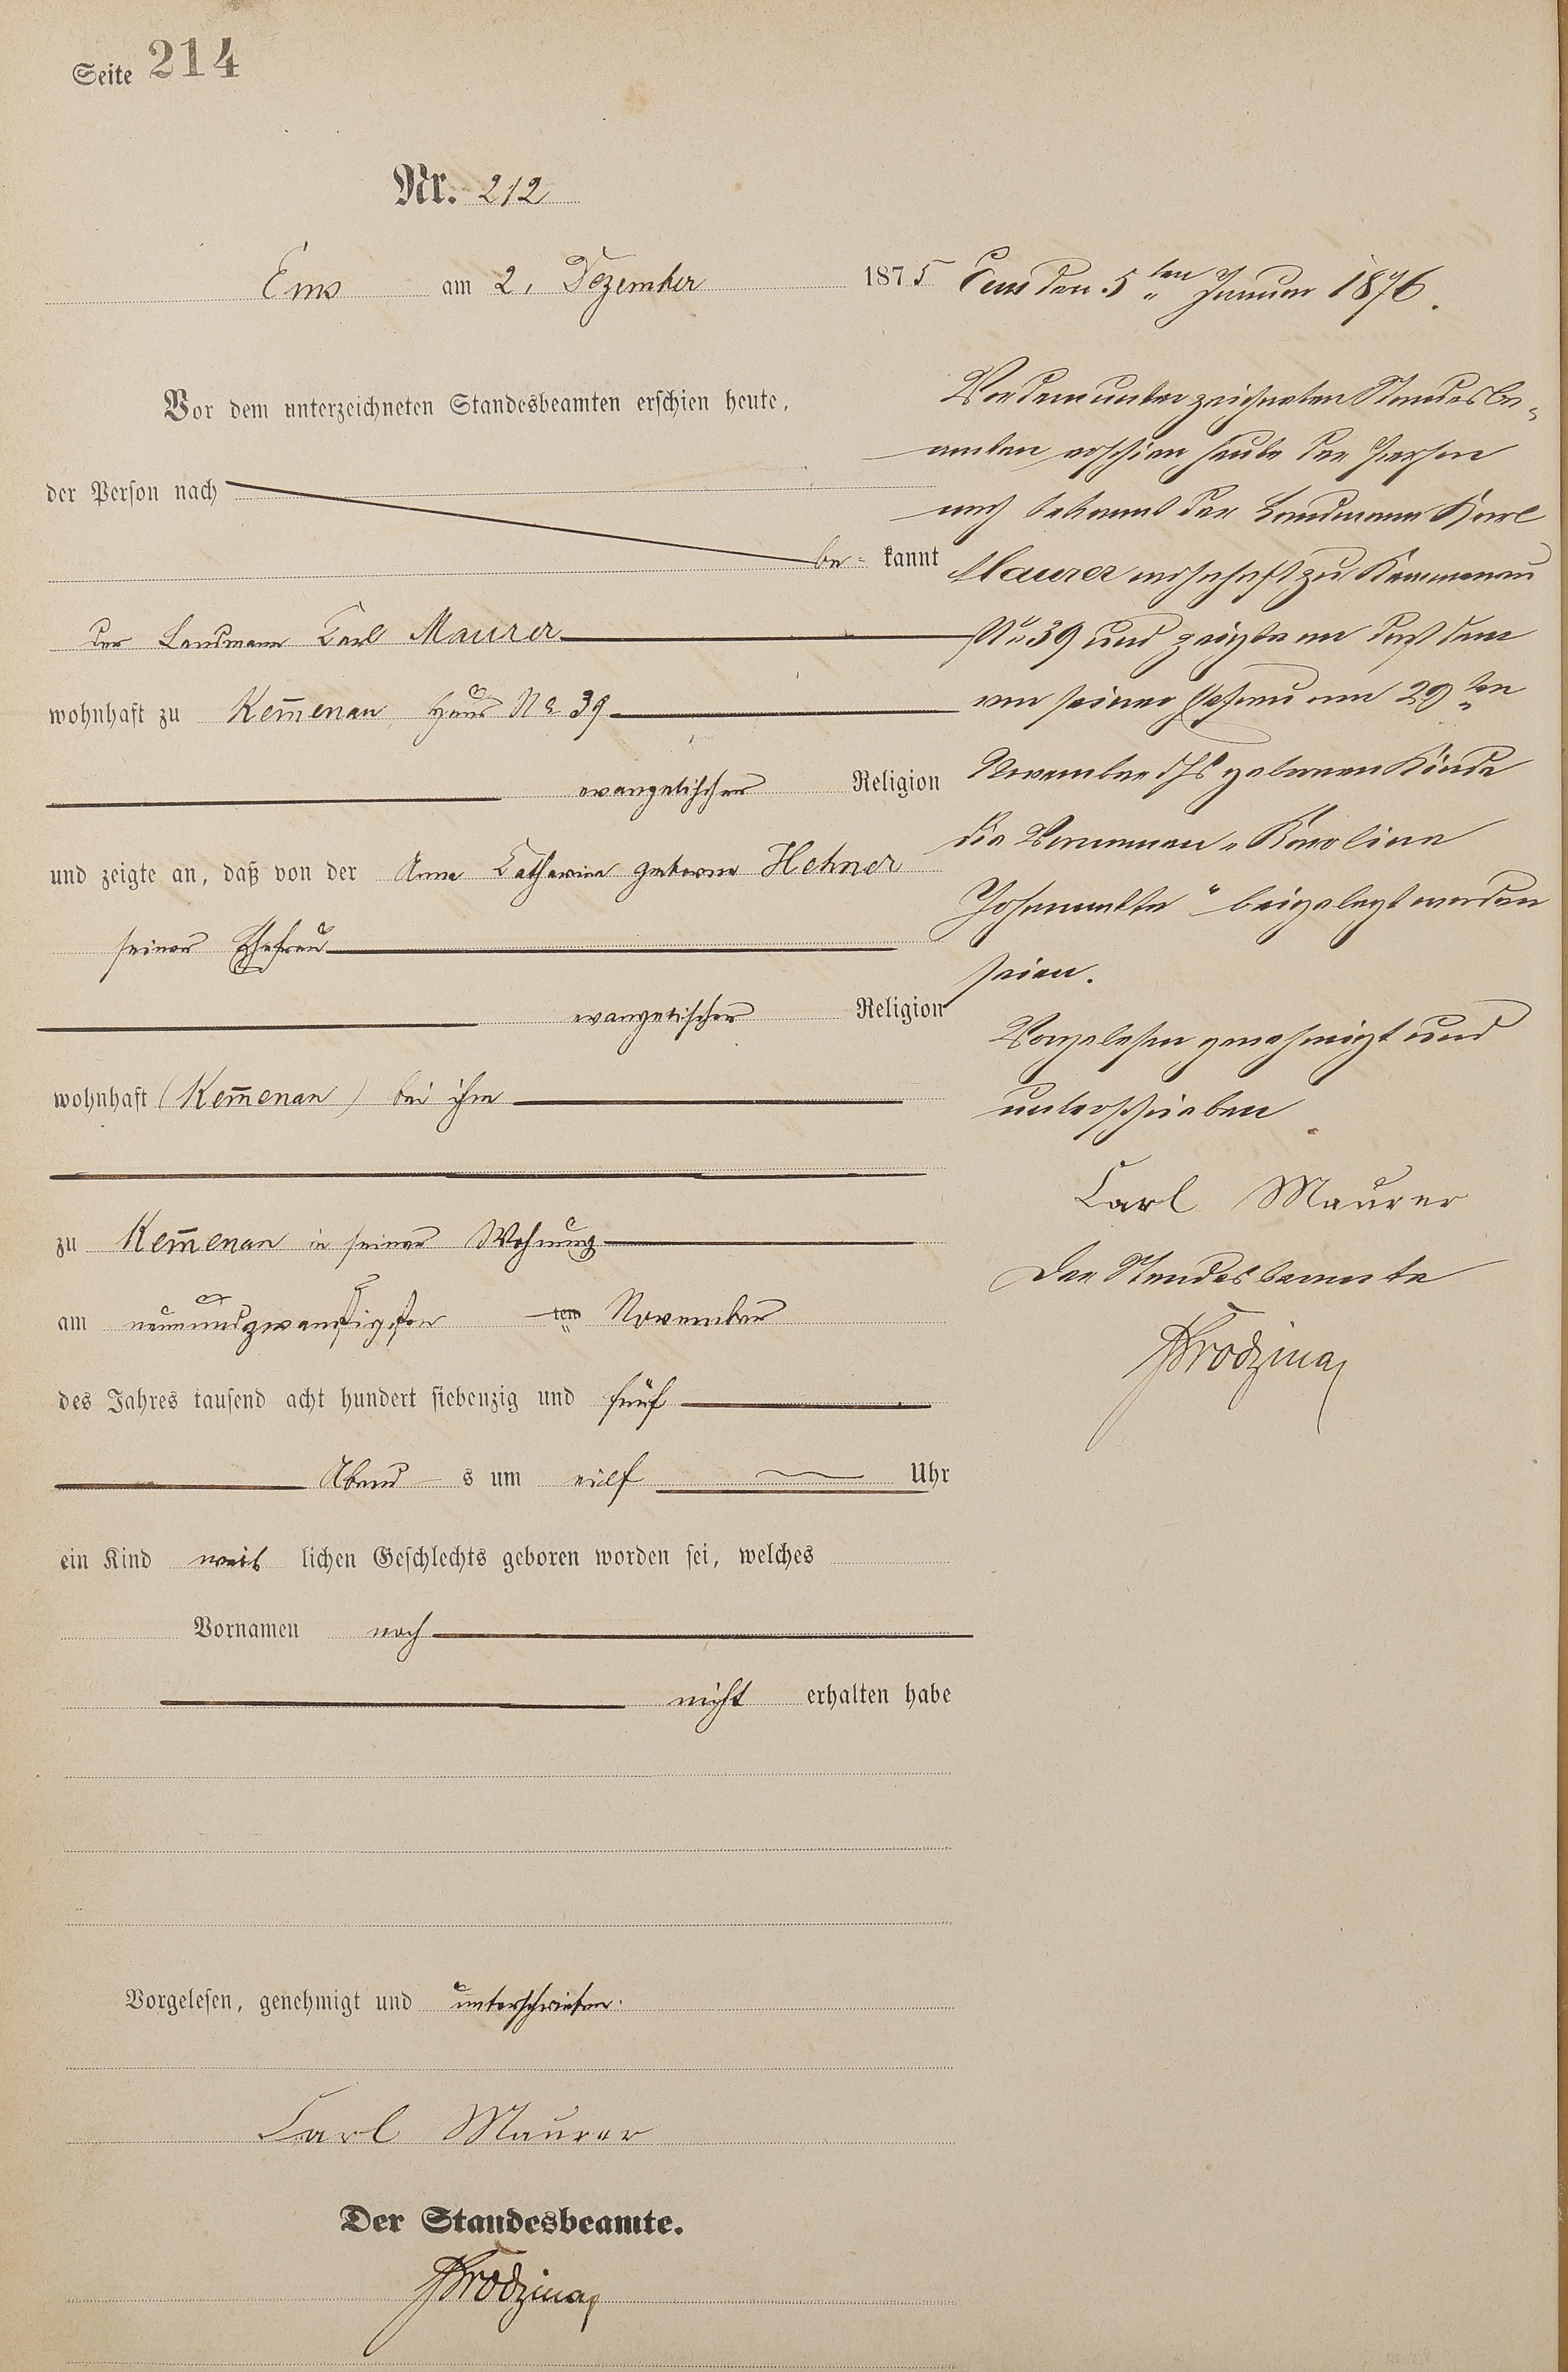 Seite 214
Nr. 212
Ems am 2. Dezember 1875
Vor dem unterzeichneten Standesbeamten erschien heute,
der Person nach
be= kannt
der Landmann Carl Maurer
wohnhaft zu Kem̄enau Haus No 39
evangelischer Religion
und zeigte an, daß von der Anna Catharina geborne Hehner
seiner Ehefrau
evangelischer Religion
wohnhaft (Kem̄enau) bei ihm
zu Kem̄enau in seiner Wohnung
am neunundzwanzigsten ten November
des Jahres tausend acht hundert siebenzig und fünf
Abend s um eilf Uhr
ein Kind weib lichen Geschlechts geboren worden sei, welches
Vornamen noch
nicht erhalten habe
Vorgelesen, genehmigt und unterschrieben.
Carl Maurer
Der Standesbeamte.
Ems den 5ten Januar 1876.
Vor dem unterzeichneten Standesbe-
amten erschien heute der Person
nach bekannt der Landmann Karl
Maurer wohnhaft zu Kemmenau
No 39 und zeigte an daß dem
von seiner Ehefrau am 29ten
November geborenen Kinde
die Vornamen „Karoline
Johannette" beigelegt worden
seien.
Vorgelesen genehmigt und
unterschrieben
Carl Maurer
Der Standesbeamte